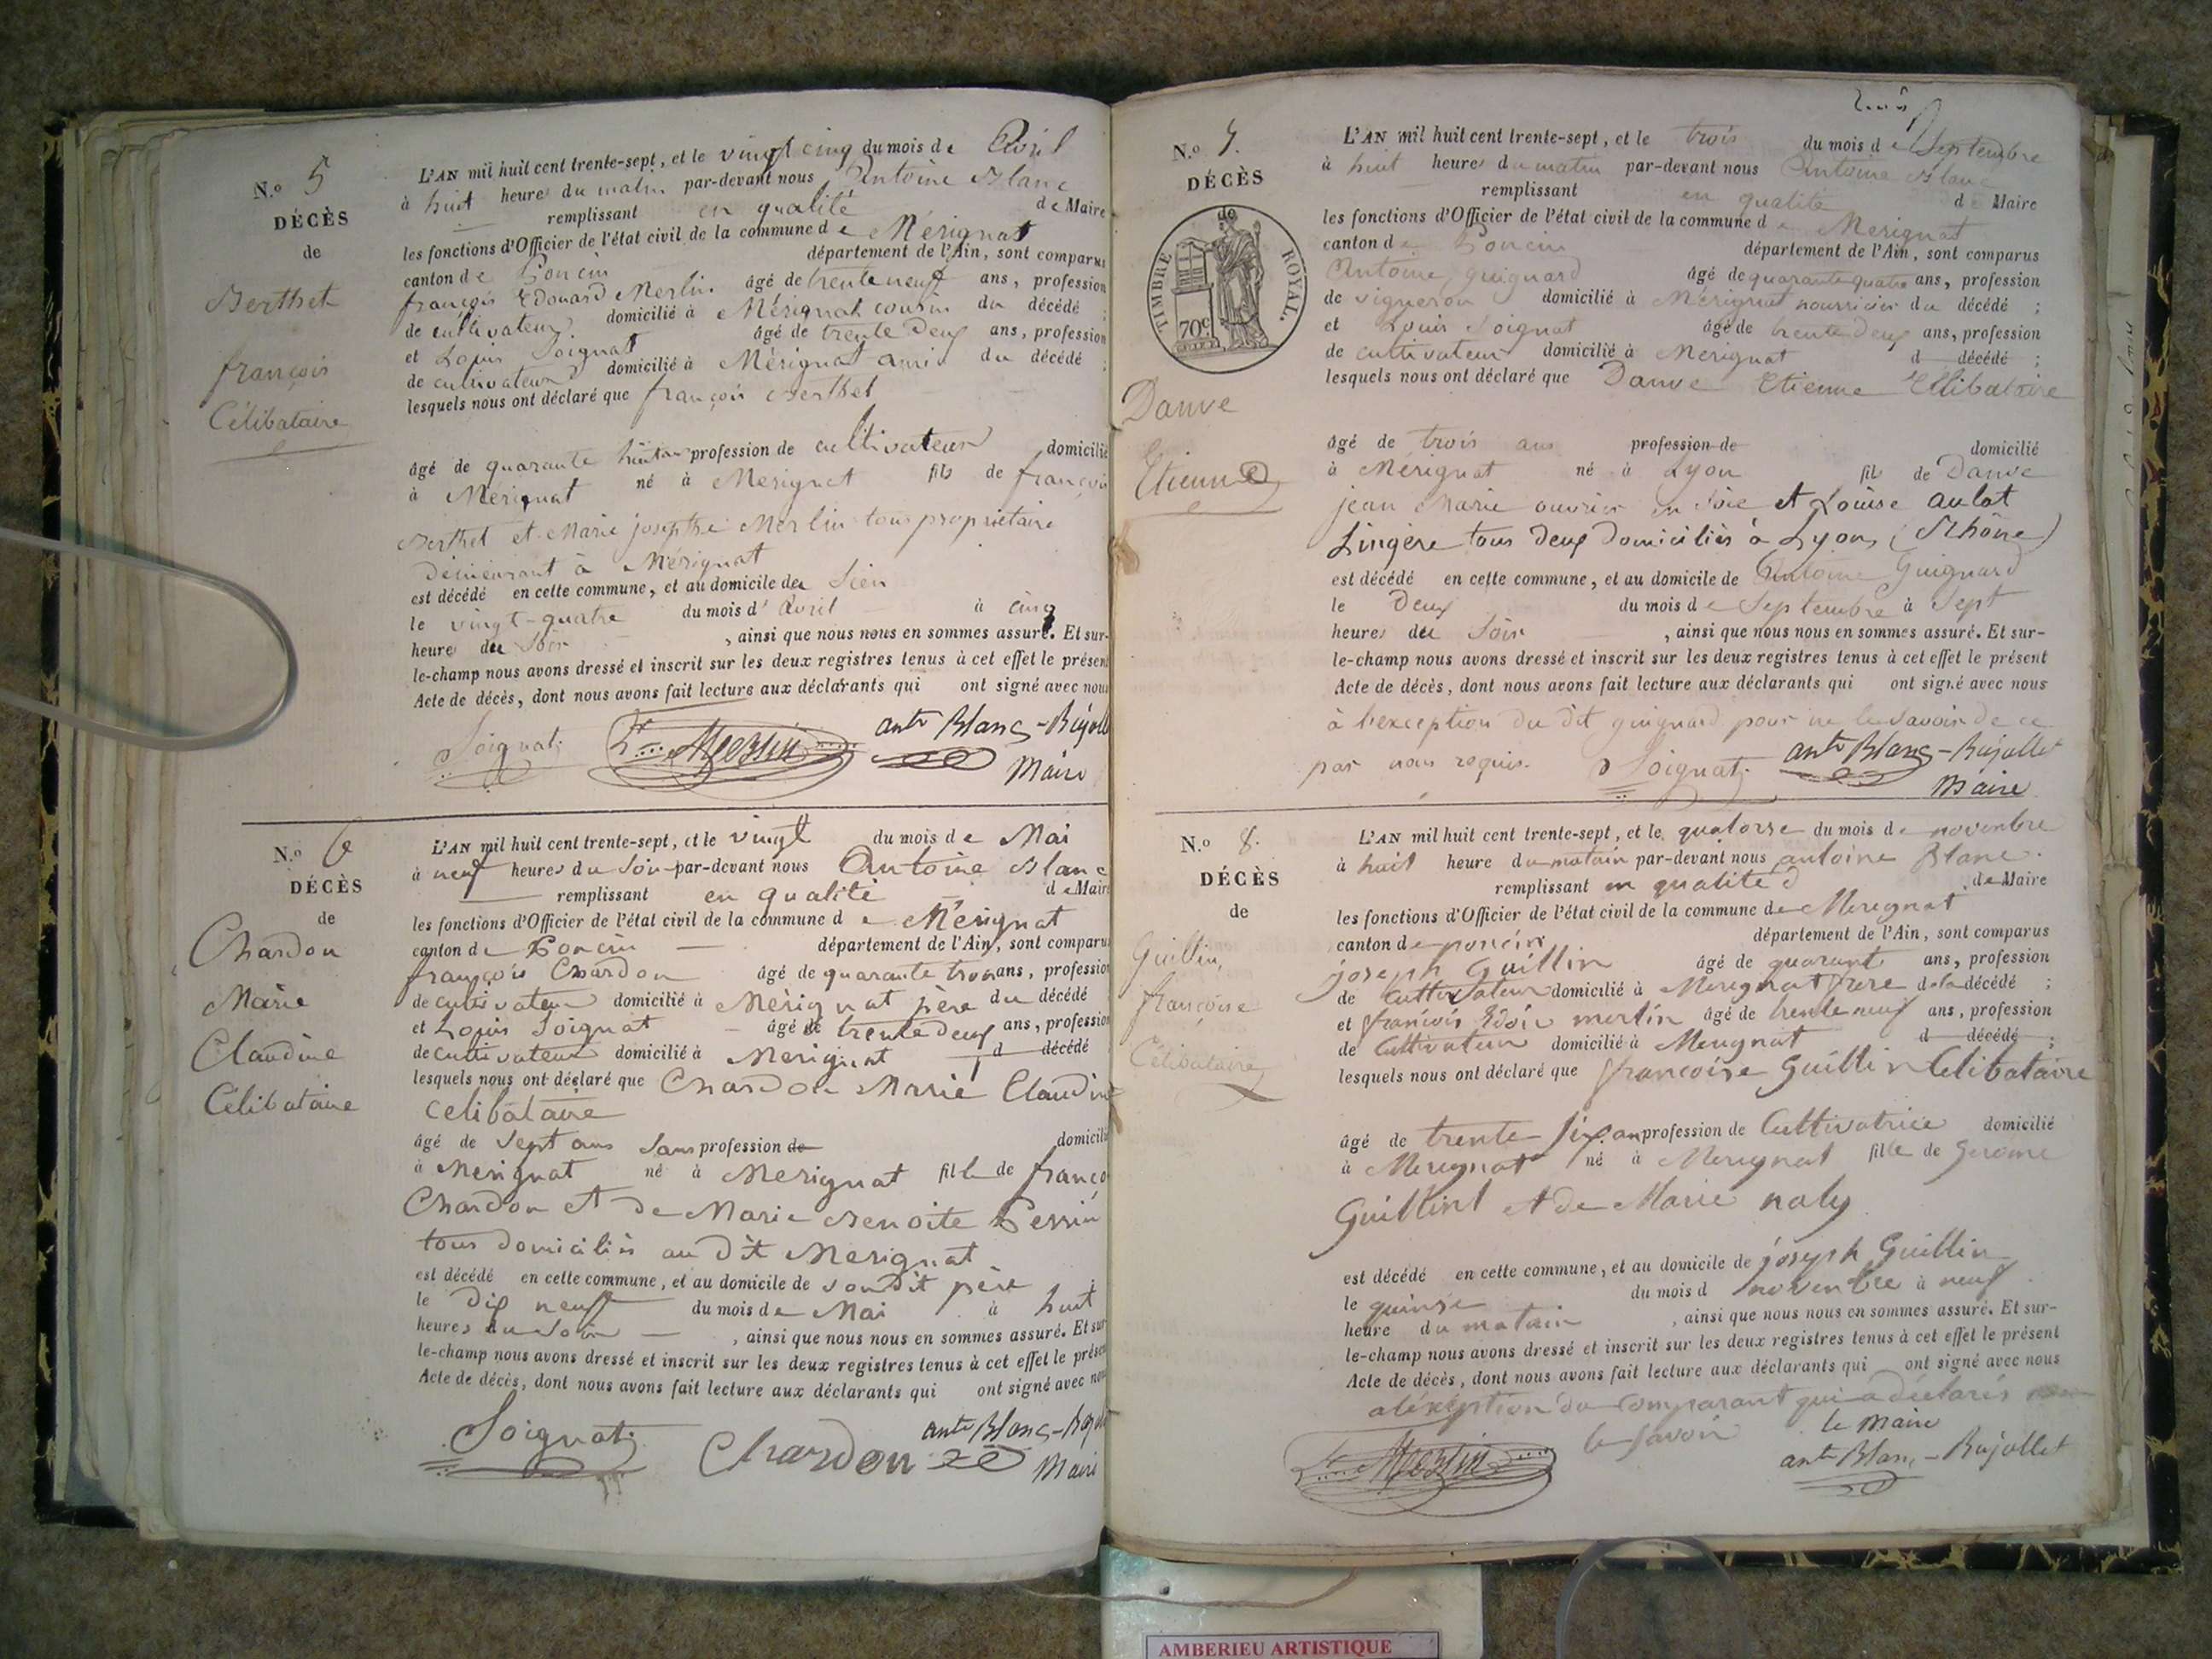 N.o 5
DÉCÈS
de
Berthet
françois
Célibataire
L'AN mil huit cent trente-sept, et le vingt cinq du mois de Avril
à huit heures du matin par-devant nous Antoine Blanc
remplissant en qualité de Maire
les fonctions d'Officier de l'état civil de la commune de Mérignat
canton de Poncin département de l'Ain, sont comparus
françois Edouard Merlin âgé de trente neuf ans, profession
de cultivateur domicilié à Mérignat cousin du décédé ;
et Louis Soignat âgé de trente deux ans, profession
de cultivateur domicilié à Mérignat ami du décédé ;
lesquels nous ont déclaré que françois Berthet
âgé de quarante huit ans profession de cultivateur domicilié
à Mérignat né à Mérignat fils de françois
Berthet et Marie josephte Merlin tous propriétaire
demeurant à Mérignat
est décédé en cette commune, et au domicile de Sien
le vingt-quatre du mois d'avril à cinq
heures du Soir , ainsi que nous nous en sommes assuré. Et sur-
le-champ nous avons dressé et inscrit sur les deux registres tenus à cet effet le présent
Acte de décès, dont nous avons fait lecture aux déclarants qui ont signé avec nous
Soignat Merlin ant Blanc-Bujollet
Maire
N.o 6
DÉCÈS
de
Chardon
Marie
Claudine
Célibataire
L'AN mil huit cent trente-sept, et le vingt du mois de Mai
à neuf heures du Soir par-devant nous Antoine Blanc
remplissant en qualité de Maire
les fonctions d'Officier de l'état civil de la commune de Mérignat
canton de Poncin département de l'Ain, sont comparus
françois Chardon âgé de quarante trois ans, profession
de cultivateur domicilié à Mérignat père du décédé
et Louis Soignat âgé de trente deux ans, profession
de cultivateur domicilié à Mérignat d décédé
lesquels nous ont déclaré que Chardon Marie Claudine
celibataire
âgé de Sept ans Sans profession de domicilié
à Mérignat né à Mérignat fille de franço
Chardon et de Marie Benoite Perrin
tous domiciliés au dit Merignat
est décédé en cette commune, et au domicile de Son dit père
le dix neuf du mois de Mai à huit
heures du Soir , ainsi que nous nous en sommes assuré. Et sur
le-champ nous avons dressé et inscrit sur les deux registres tenus à cet effet le présent
Acte de décès, dont nous avons fait lecture aux déclarants qui ont signé avec nous
Soignat Chardon ant Blanc-Bujollet
Maire
N.o 7.
DÉCÈS
de
TIMBRE ROYAL.
70c
Danve
Etienne
L'AN mil huit cent trente-sept, et le trois du mois de Septembre
à huit heures du matin par-devant nous Antoine Blanc
remplissant en qualité de Maire
les fonctions d'Officier de l'état civil de la commune de Mérignat
canton de Poncin département de l'Ain, sont comparus
Antoine guignard âgé de quarante quatre ans, profession
de vigneron domicilié à Mérignat nourricier du décédé ;
et Louis Soignat âgé de trente deux ans, profession
de cultivateur domicilié à Mérignat d décédé ;
lesquels nous ont déclaré que Danve Etienne Célibataire
âgé de trois ans profession de domicilié
à Mérignat né à Lyon fils de Danve
jean Marie ouvrier en Soie et Louise aulot
Lingère tous deux domiciliés à Lyon, (Rhône)
est décédé en cette commune, et au domicile de Antoine Guignard
le Deux du mois de Septembre à Sept
heures du Soir , ainsi que nous nous en sommes assuré. Et sur-
le-champ nous avons dressé et inscrit sur les deux registres tenus à cet effet le présent
Acte de décès, dont nous avons fait lecture aux déclarants qui ont signé avec nous
à l'exception du dit guignard pour ne le Savoir de ce
par nous requis. Soignat ant Blanc-Bujollet
Maire
N.o 8.
DÉCÈS
de
Guillin,
françoise
Célibataire
L'AN mil huit cent trente-sept, et le quatorse du mois de novenbre
à huit heure du matain par-devant nous antoine Blanc.
remplissant en qualité d de Maire
les fonctions d'Officier de l'état civil de la commune de Merignat
canton de poncin département de l'Ain, sont comparus
joseph Guillin âgé de quarante ans, profession
de Cultivateur domicilié à Merignat frere de la décédé ;
et françois merlin âgé de trente neuf ans, profession
de Cultivateur domicilié à Merignat d décédé ;
lesquels nous ont déclaré que françoise Guillin Celibataire
âgé de trente Six an profession de Cultivatrice domicilié
à Merignat né à Merignat fille de Gerome
Guillint et de Marie naly
est décédé en cette commune, et au domicile de joseph Guillin
le quinse du mois d novenbre à neuf
heure du matain , ainsi que nous nous en sommes assuré. Et sur-
le-champ nous avons dressé et inscrit sur les deux registres tenus à cet effet le présent
Acte de décès, dont nous avons fait lecture aux déclarants qui ont signé avec nous
aléxéption du Comparant qui a déclarés
le Savoir le Maire
Merlin ant Blanc-Bujollet
AMBERIEU ARTISTIQUE